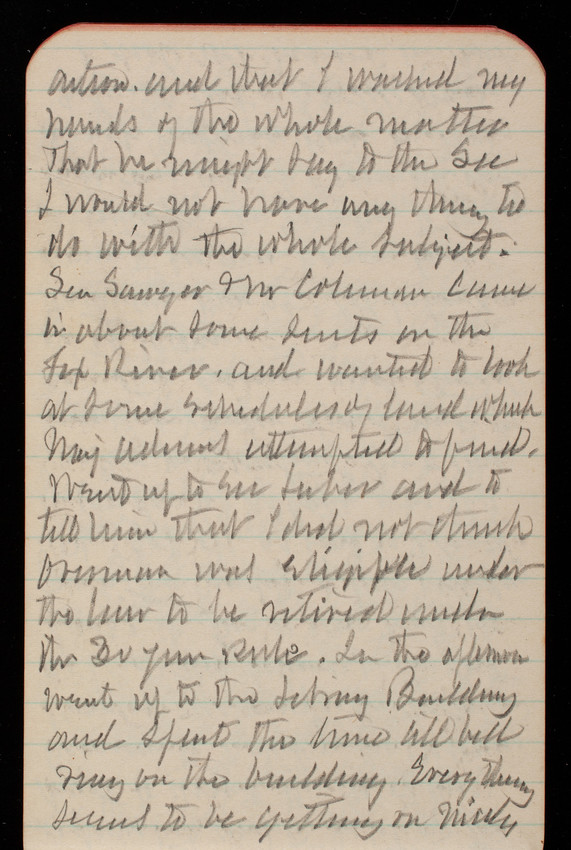 action. and that I washed my
hands of the whole matter
That he might say to the Sec
I would not have any thing to
do with the whole subject.
Sen Sawyer & Mr Coleman came
in about some suits on the
Fox River. and wanted to look
at some schedules of land which
Maj Adams attempted to find.
Went up to see and to
tell him that I did not think
Overman was eligible under
the law to be retired under
the 30 year Rule. In the afternoon
went up to the Library Building
and spent the time till bell
ring on the building. Every thing
seems to be getting on nicely